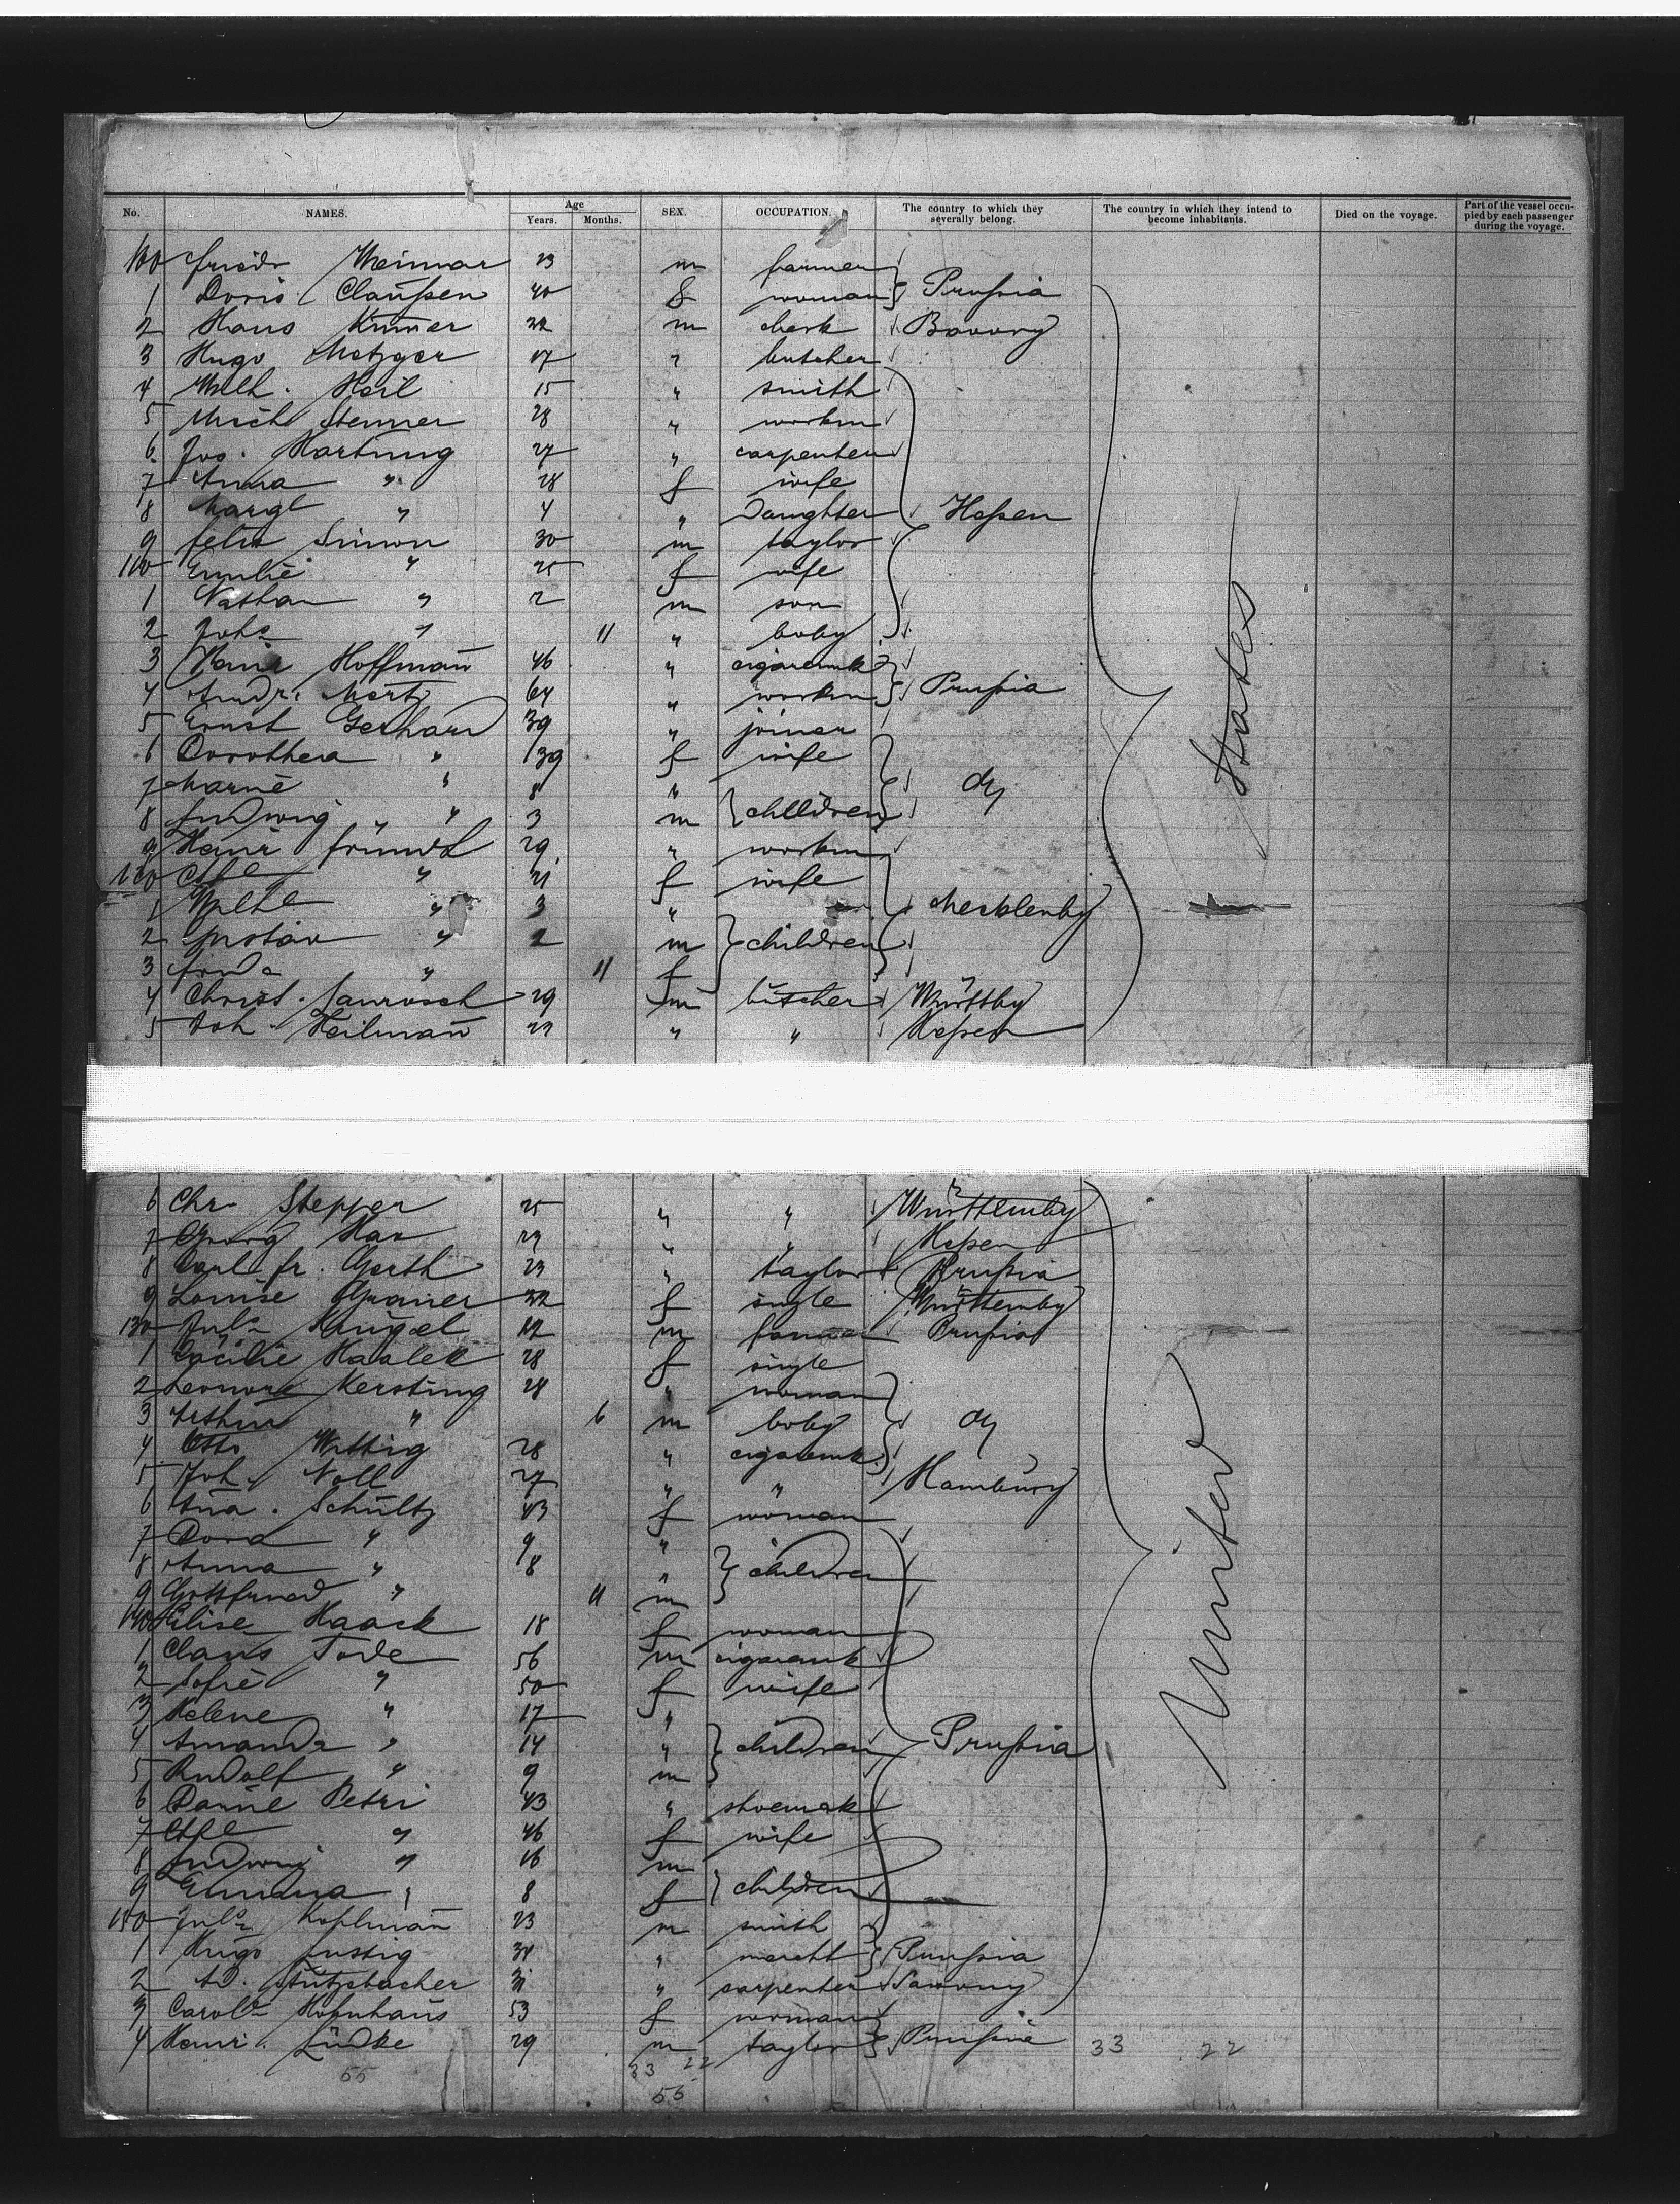 No. NAMES. Age Years. Months. SEX. OCCUPATION. The country to which they severally belong. The country in which they intend to become inhabitants. Died on the voyage. Part of the vessel occupied by each passenger during the voyage.
100 Friedr Weimar 23 m farmer
1 Doris Claußen 40 f woman Prußia
2 Hans 22 m clerk
3 Hugo Metzger 17 " butcher
4 Wilh. Heil 15 " smith
5 Stenner 28 " workm
6 Jos. Hartung 27 " carpenter
7 Anna " 28 f wife
8 Margt " 4 " Daughter Heßen
9 Felix Simon 30 m taylor
110 Emilie " 25 f wife
1 Nathan " 2 m son
2 Johs " 11 " baby
3 Hoffman 46 " cigarmk
4 Andr. Mertz 64 " workm Prußia
5 Ernst Gerhard 39 " joiner
6 Dorothea " 39 f wife
7 Marie " 8 " dy
8 Ludwig " 3 m children
9 Heinr Fründt 29 " workm
120 " 21 f wife
1 " 3 " Mecklenbg
2 Gustav " 2 m children
3 Frida " 11 f
4 Christ. 29 m butcher Württbg
5 Joh. Heilman 22 " " Heßen
6 Chr. Stepper 25 " " Württembg
7 Georg 23 " " Heßen
8 Carl Fr. Gerth 23 " taylor Prußia
9 Louise 22 f single Württembg
130 Juls Kugel m farmer Prußia
1 Cäcilie 28 f single
2 Leonore Kersting 28 " woman
3 Arthur " 6 m baby dy
4 Otto Wittig 28 " cigarmk
5 Joh. Noll 27 " " Hamburg
6 Ana. Schultz 43 f woman
7 Dora " 9 "
8 Anna " 8 " children
9 Gottfried " 11 m
140 Elise Haack 18 f woman
1 Claus Tode 56 m cigarmk
2 Sofie " 50 f wife
3 Helene " 17 "
4 Amanda " 14 " children Prußia
5 Rudolf " 9 m
6 Petri 43 " shoemak
7 " 46 f wife
8 Ludwig " 16 m
9 Emma " 8 f children
150 Juls Kohlman 23 m smith
1 Hugo Lustig 34 " marcht Prußia
2 Ad. Stutzbacher 31 " carpenter Saxony
3 Carole Hohnhaus 53 f woman
4 Heinr. Lüdke 29 m taylor Prußia 33 22
55 33 22
55
United States